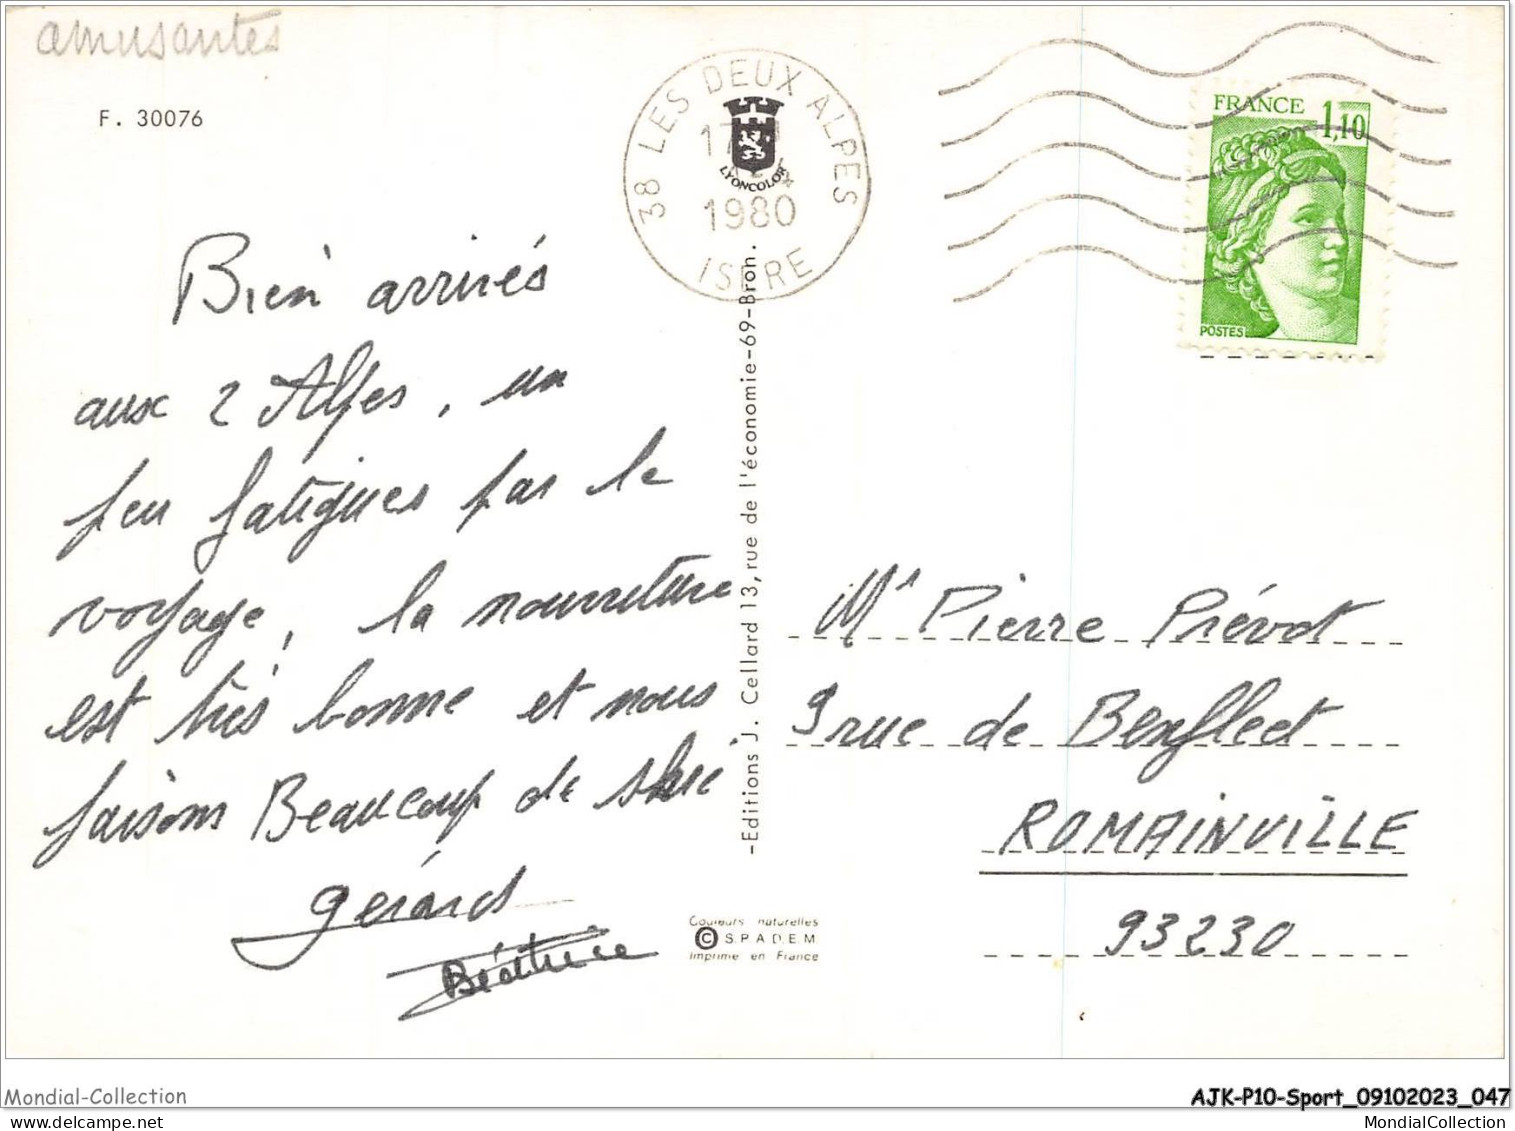 amusantes
F. 30076
38 LES DEUX ALPES
1980
ISERE
LYONCOLOR
FRANCE 1,10
POSTES
Bien arrivés
aux 2 Alpes, un
peu fatigués par le
voyage, la nourriture
est très bonne et nous
faisons Beaucoup de
Gérard
Béatrice
-Editions J. Cellard 13, rue de l'économie-69-Bron.
Couleurs naturelles
© S.P.A.D.E.M
Imprimé en France
Mr Pierre Prévot
9 rue de Benfleet
ROMAINVILLE
93230
Mondial-Collection
AJK-P10-Sport_09102023_047
MondialCollection